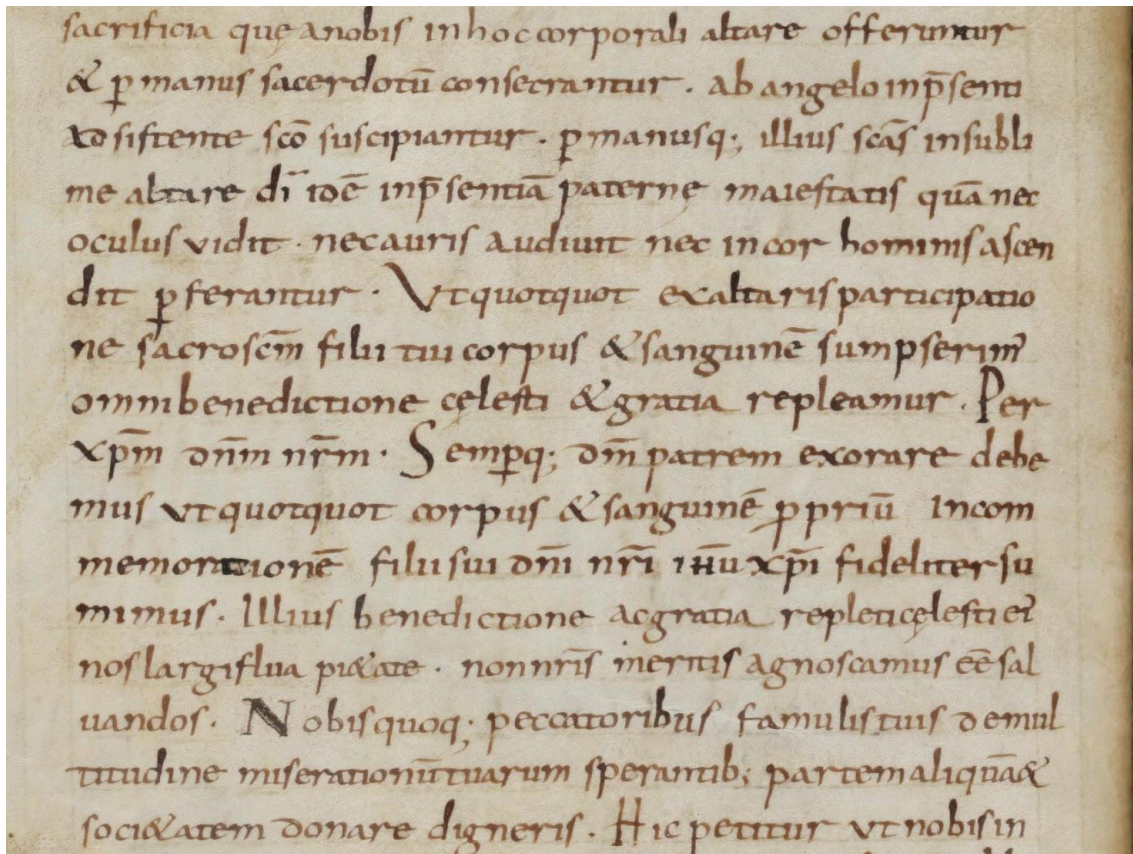 sacrificia quę anobis inhoccorporali altare offeruntur
& p̱ manus sacerdotū consecrantur . ab angelo inp̄senti
xo sistente sc̄o suscipiantur . p̱ manusq; illius sc̄as insubli
me altare dī idē inp̄sentiā paternę maiestatis quā nec
oculus vidit . necauris audiuit nec incor hominis ascen
dit p̱ferantur . Vtquotquot exaltaris participatio
ne sacrosc̄m filii tui corpus & sanguinē sumpserim̄
omnibenedictione cęlesti & gratia repleamur . Per
xp̄m dn̄m nr̄m . Semp̱q; dm̄ patrem exorare debe
mus vtquotquot corpus & sanguinē p̱priū incom
memorationē filii sui dn̄i nr̄i ihū xp̄i fideliter su
mimus . Illius benedictione acgratia repleticęlesti ei
nos largiflua pi&ate . nonnr̄is meritis agnoscamus eē sal
uandos . Nobisquoq; peccatoribus famulistuis demul
titudine miserationūtuarum sperantib; partem aliquā&
soci&atem donare digneris . Hicpetitur vtnobisin